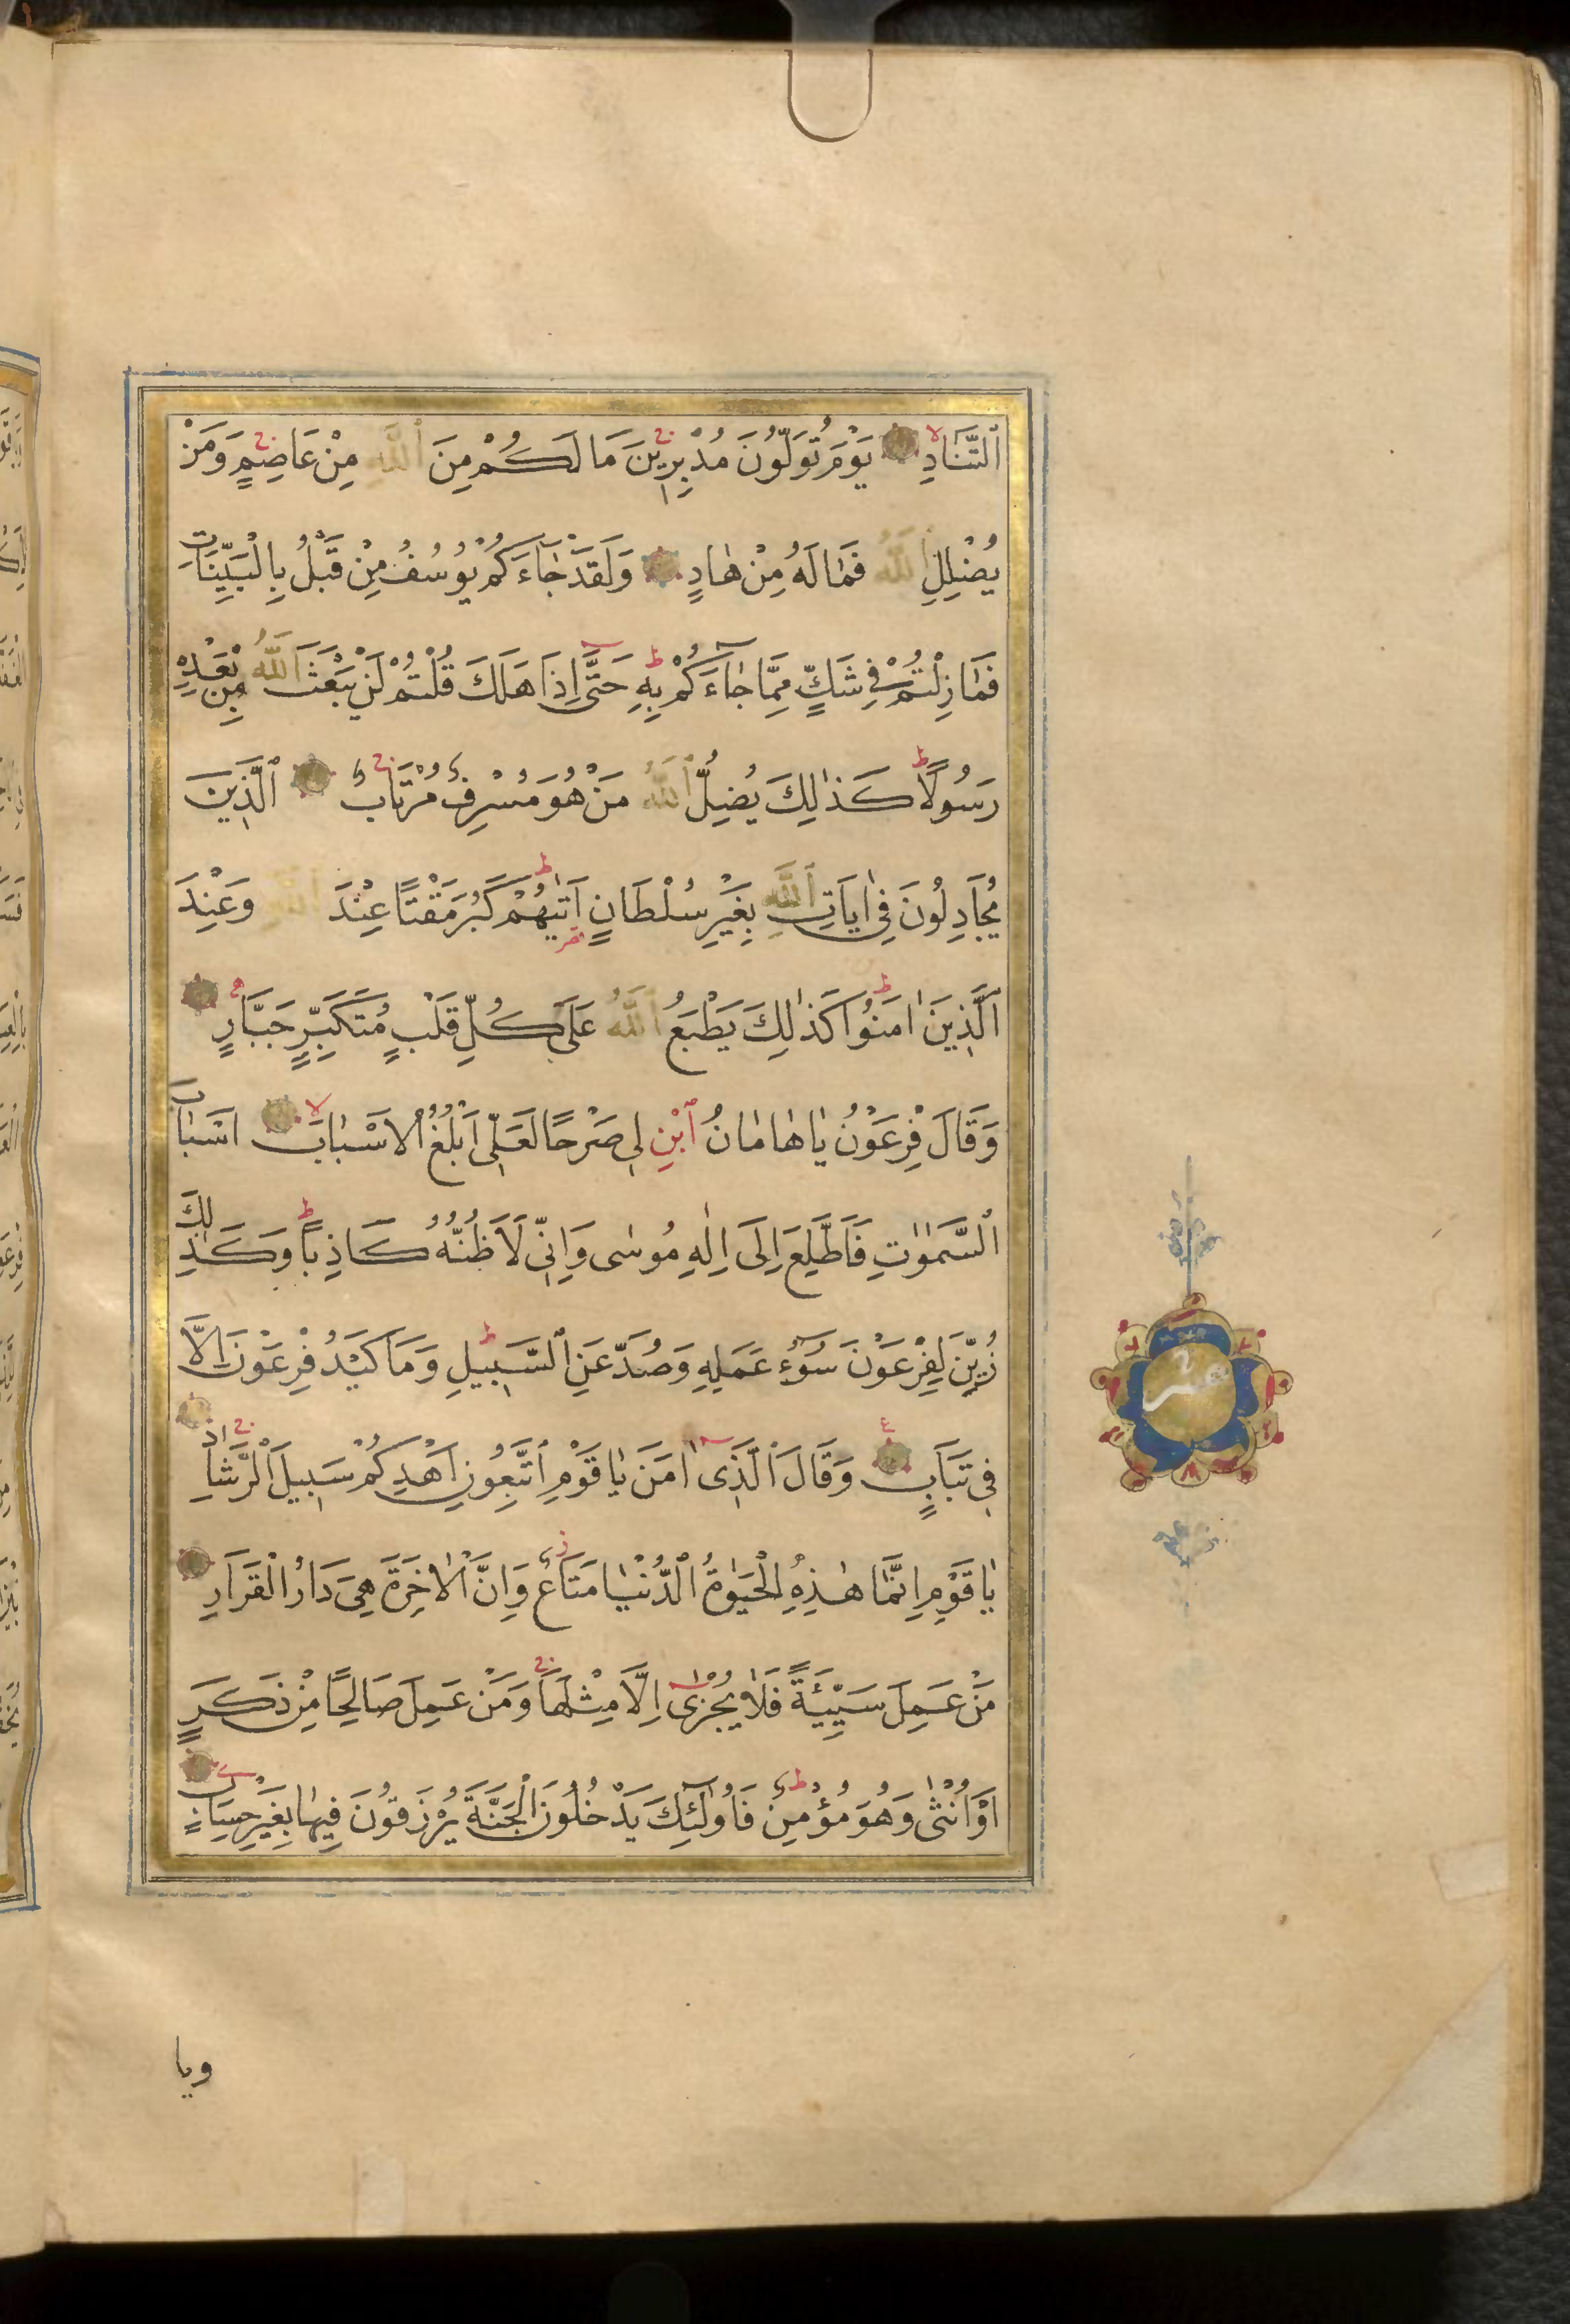 اَلتَّنَادِ يَوْمَ تُوَلُّونَ مُدْبِرِينَ مَا لَكُمْ مِنَ اللّٰهِ مِنْ عَاصِمٍ وَمَنْ
يُضْلِلِ اللّٰهُ فَمَا لَهُ مِنْ هَادٍ وَلَقَدْ جَاءَكُمْ يُوسُفُ مِنْ قَبْلُ بِالْبَيِّنَاتِ
فَمَا زِلْتُمْ فِي شَكٍّ مِمَّا جَاءَكُمْ بِهِ حَتَّى اِذَا هَلَكَ قُلْتُمْ لَنْ يَبْعَثَ اللّٰهُ مِنْ بَعْدِهِ
رَسُولًا كَذٰلِكَ يُضِلُّ اللّٰهُ مَنْ هُوَ مُسْرِفٌ مُرْتَابٌ اَلَّذِينَ
يُجَادِلُونَ فِي اٰيَاتِ اللّٰهِ بِغَيْرِ سُلْطَانٍ اَتٰيهُمْ كَبُرَ مَقْتًا عِنْدَ اللّٰهِ وَعِنْدَ
الَّذِينَ اٰمَنُوا كَذٰلِكَ يَطْبَعُ اللّٰهُ عَلَى كُلِّ قَلْبٍ مُتَكَبِّرٍ جَبَّارٍ
وَقَالَ فِرْعَوْنُ يٰا هٰامٰانُ ابْنِ لِي صَرْحًا لَعَلِّي اَبْلُغُ الْاَسْبٰابَ اَسْبٰابَ
السَّمٰوٰتِ فَاَطَّلِعَ اِلَى اِلٰهِ مُوسٰى وَاِنِّي لَاَظُنُّهُ كَاذِبًا وَكَذٰلِكَ
زُيِّنَ لِفِرْعَوْنَ سُوءُ عَمَلِهِ وَصُدَّ عَنِ السَّبِيلِ وَمَا كَيْدُ فِرْعَوْنَ اِلَّا
فِي تَبَابٍ وَقَالَ الَّذِي اٰمَنَ يٰا قَوْمِ اتَّبِعُونِ اَهْدِكُمْ سَبِيلَ الرَّشَادِ
يٰا قَوْمِ اِنَّمَا هٰذِهِ الْحَيٰوةُ الدُّنْيَا مَتَاعٌ وَاِنَّ الْاٰخِرَةَ هِيَ دَارُ الْقَرَارِ
مَنْ عَمِلَ سَيِّئَةً فَلَا يُجْزٰى اِلَّا مِثْلَهَا وَمَنْ عَمِلَ صَالِحًا مِنْ ذَكَرٍ
اَوْ اُنْثٰى وَهُوَ مُؤْمِنٌ فَاُولٰئِكَ يَدْخُلُونَ الْجَنَّةَ يُرْزَقُونَ فِيهَا بِغَيْرِ حِسَابٍ
ويا